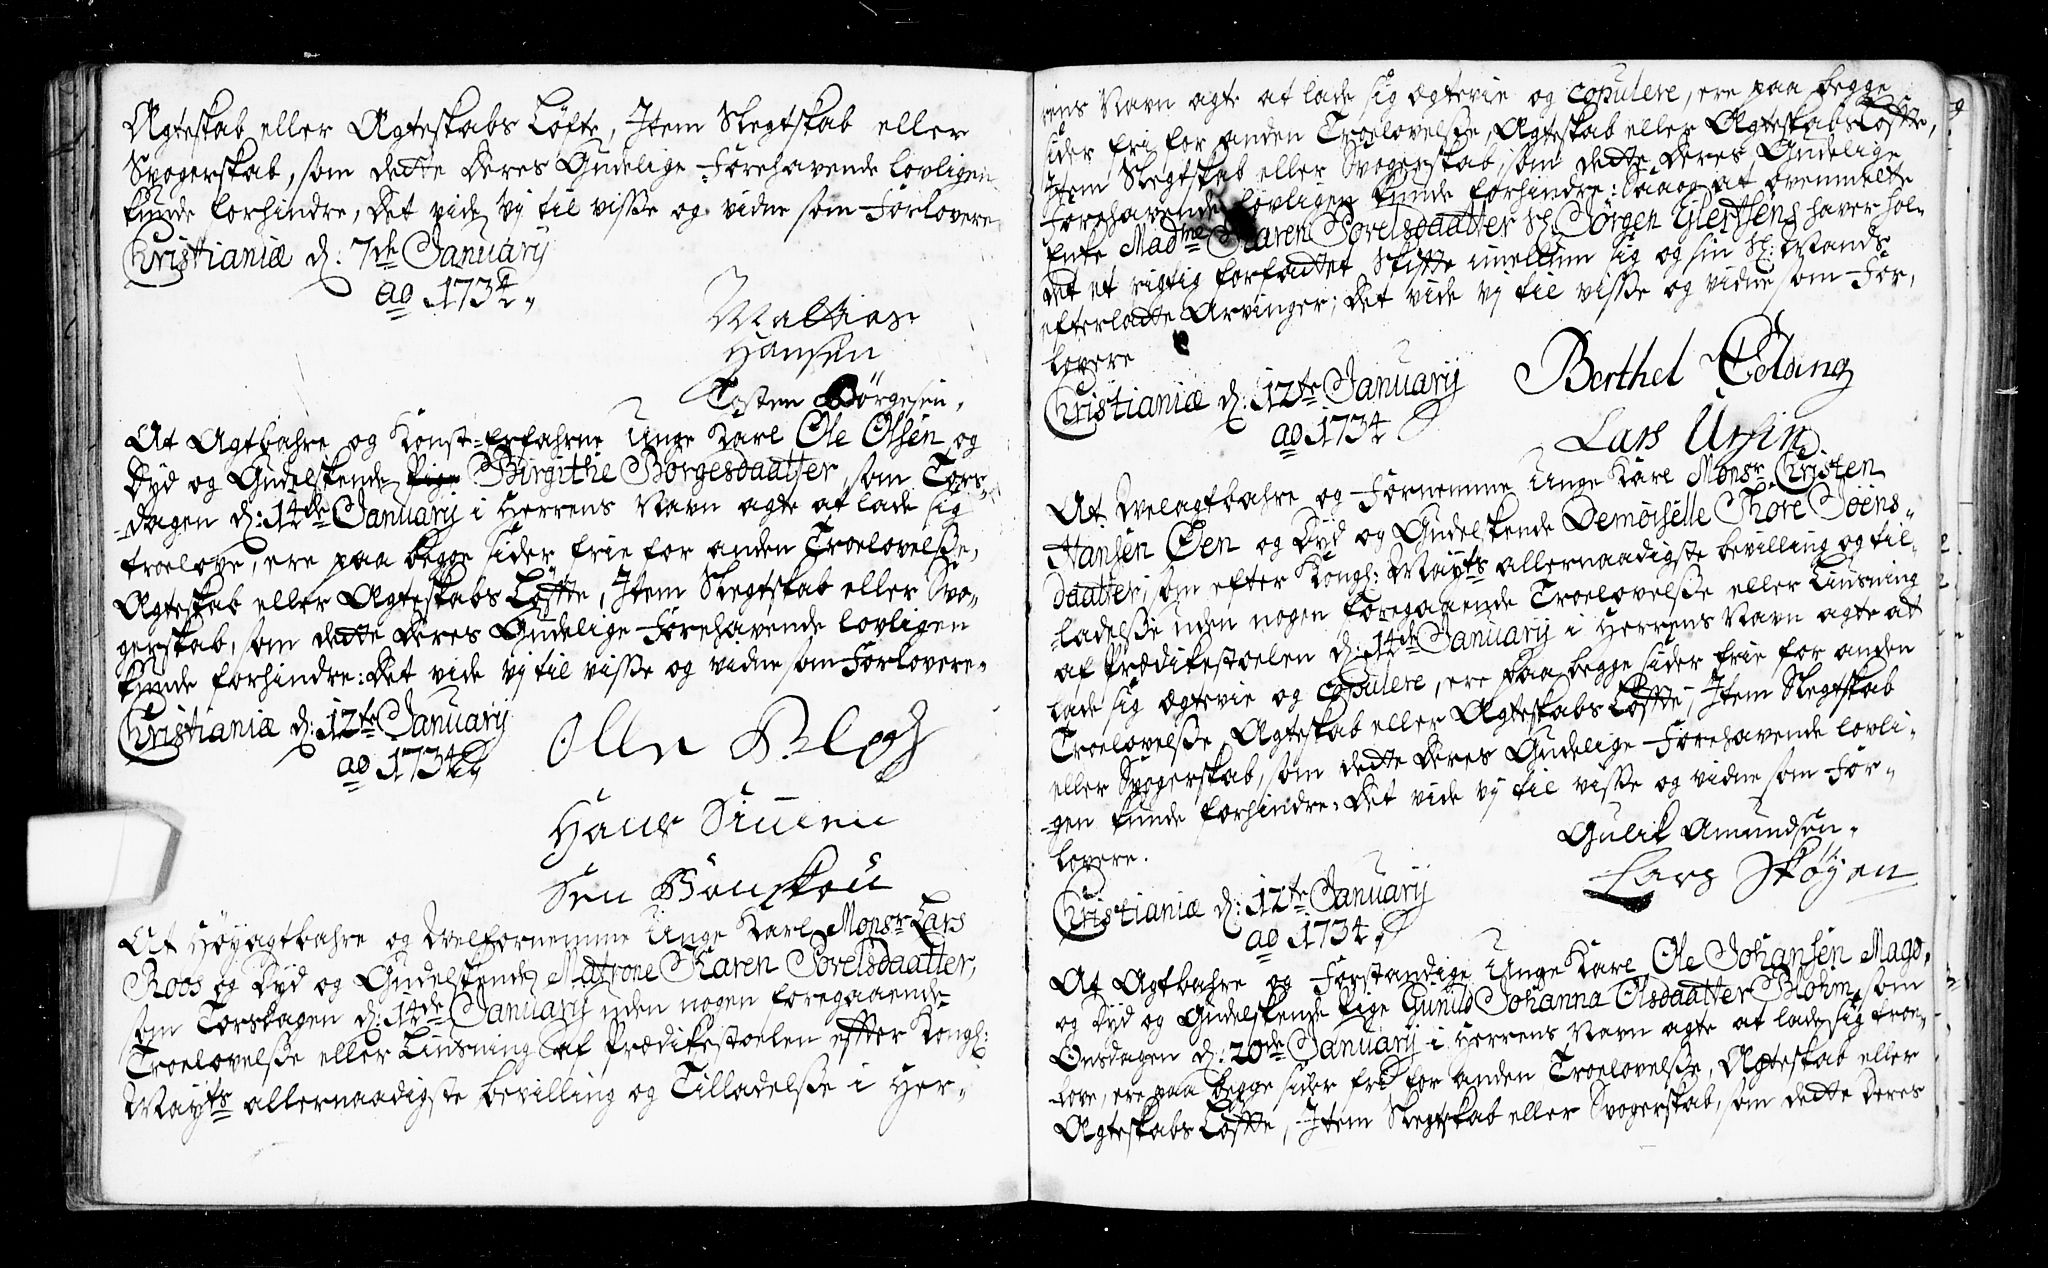 Ægteskab eller Ægteskabs Løfte, Item Slegtskab eller
Svogerskab, som dette deres Gudelige Forehavende lovligen
kunde forhindre, det vide vj til visse og vidne som Forlovere
Christianiæ d: 7de January
ao 1734
Mathias
Hansen
Tosten Börgesen
At Agtbahre og Konst-erfahrne Unge Karl Ole Olsen og
Dyd og Gudelskende Pige Birgithe Borgesdaatter, som Tors-
-dagen d: 14de January i Herrens Navn agte at lade sig
troelove, ere paa begge sider frie for anden Troelovelsse,
Ægteskab eller Ægteskabs Løfte, Item Slegtskab eller Svo-
gerskab, som dette deres Gudelige Forehavende lovligen
kunde forhindre: det vide vj til visse og vidne som Forlovere
Christianiæ d: 12te January
ao 1734
Olle
Hans
At Høyagtbahre og Velfornemme Unge Karl Monsr Lars
Roos og Dyd og Gudelskende Matrone Karen Sorelsdaatter,
som Torsdagen d: 14de January uden nogen foregaaende
Troelovelsse eller Liusning af Prædikestoelen efter Kongl:
Mayts allernaadigste bevilling og Tilladelsse i Her-
rens Navn agte at lade sig ægtevie og copulere, ere paa begge
sider fri for anden Troelovelsse, Ægteskab eller Ægteskabs Løfte,
Item Slegtskab eller Svogerskab, som dette deres Gudelige
Forehavende lovligen kunde forhindre: Saa og at bremmelte
Enke Madme Karen Sorelsdaatter Sl: Jörgen Giertsens haver hol-
det et rigtig forfattet Skifte imellum sig og sin Sl: Mands
efterladte Arvinger; det vide vj til visse og vidne som For-
lovere
Christianiæ d: 12te January
ao 1734
Berthel
Lars Ursin
At Velagtbahre og Fornemme Unge Karl Monsr Christen
Hansen Öen og Dyd og Gudelskende Demoiselle Thore Joens-
daatter, som efter Kongl: Mayts allernaadigste bevilling og til-
-ladelsse uden nogen foregaaende Troelovelsse eller Liusning
af Prædikestoelen d: 14de January i Herrens Navn agte at
lade sig ægtevie og copulere, ere paa begge sider frie for anden
Troelovelsse, Ægteskab eller Ægteskabs Løfte, Item Slegtskab
eller Svogerskab, som dette deres Gudelige Forehavende lovli-
-gen kunde forhindre: det vide vj til visse og vidne som For-
lovere.
Gulik Amundsen
Lars Skøyen
Christianiæ d: 12te January
ao 1734
At Agtbahre og Forstandige Unge Karl Ole Johansen Mago,
og Dyd og Gudelskende Pige Gunild Johanna Olsdaatter Blohm, som
Onsdagen d: 20de January i Herrens Navn agte at lade sig troe-
-love, ere paa begge sider fri for anden Troelovelsse, Ægteskab eller
Ægteskabs Løfte, Item Slegtskab eller Svogerskab, som dette deres